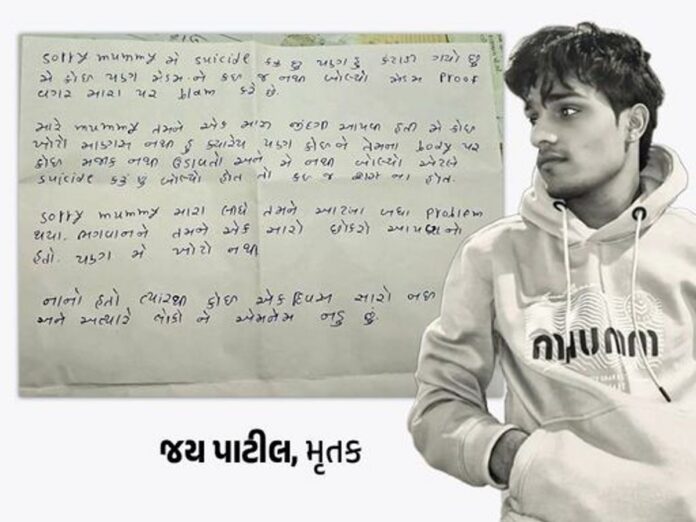 sorry mummy મે suicide કરૂ છું પણ હું કંટાળી ગયો છું
મે કોઇ પણ મેડમને કઇ જ નથી બોલ્યો મેડમ Proof
વગર મારા પર blam કરે છે.
મારે mummy તમને એક સારી જીંદગી આપવી હતી મે કોઇ
ખોટો માણસ નથી હું ક્યારેય પણ કોઇને તેમના body પર
કોઇ મજાક નથી ઉડાવતો અને મે નથી બોલ્યો એટલે
suicide કરૂ છું બોલ્યો હોત તો કઇ જ ના હોત.
sorry mummy મારા લીધે તમને આટલા બધા Problem
થયા. ભગવાનને તમને એક સારો છોકરો આપવાનો
હતો. પણ મે ખોટો નથી
નાનો હતો ત્યારથી કોઇ એક દિવસ સારો નથી
અને અત્યારે લોકો ને એમનેમ નડુ છું.
જય પાટીલ, મૃતક